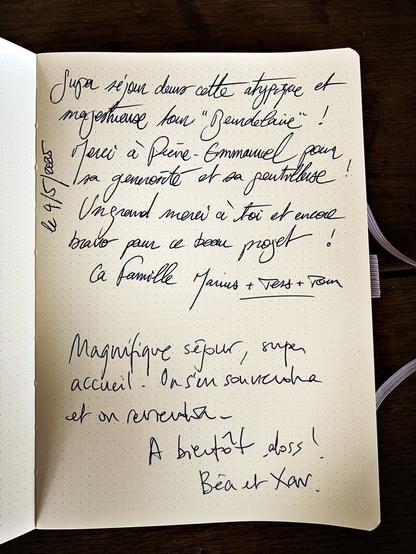 Super séjour dans cette atypique et
majestueuse tour "Baudelaire" !
Merci à Pierre-Emmanuel pour
sa générosité et sa gentillesse !
Un grand merci à toi et encore
bravo pour ce beau projet !
La Famille Marius + Tess + Tom
le 9/5/2025
Magnifique séjour, super
accueil. On s'en souviendra
et on reviendra_
A bientôt !
Béa et Xav.